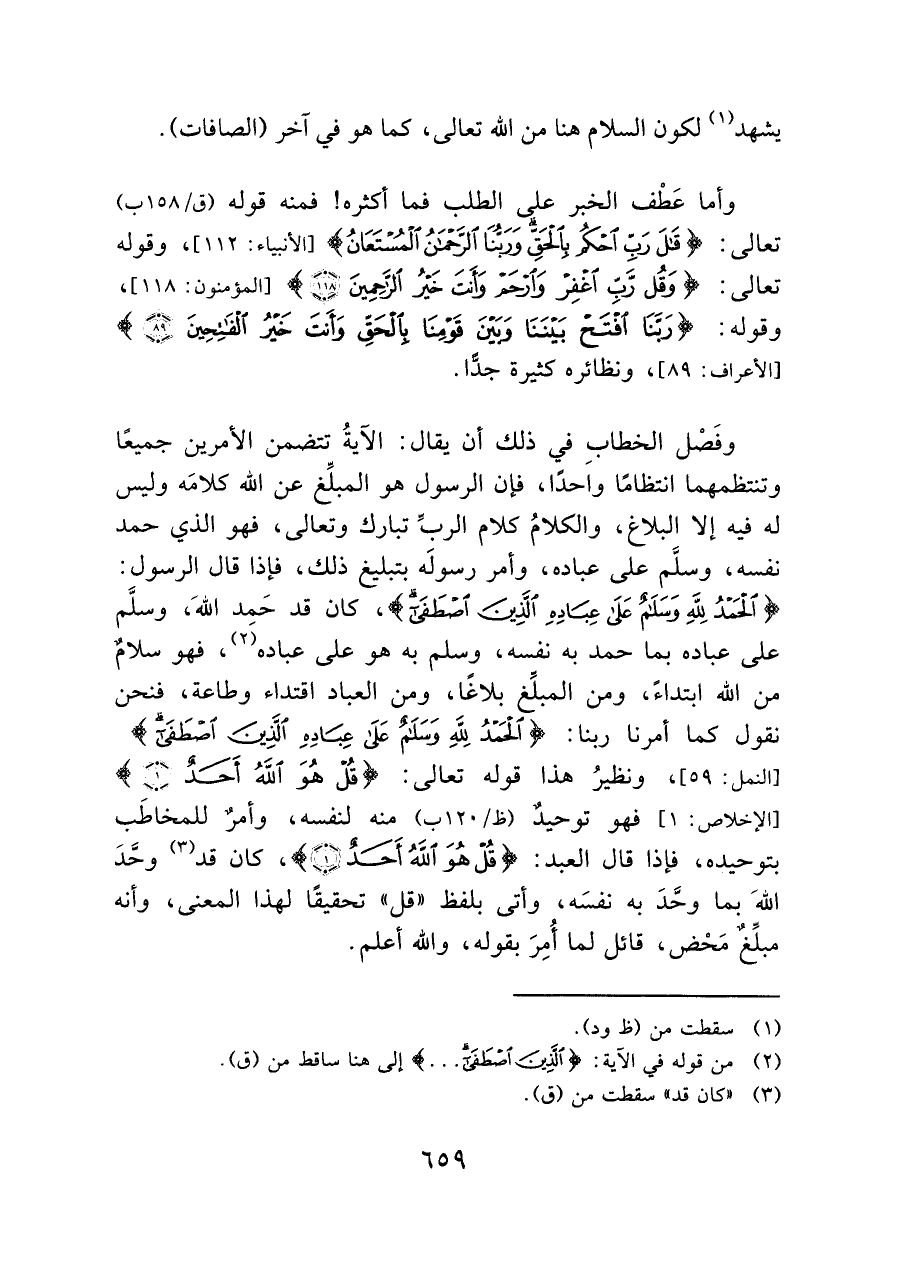 يشهد(١) لكون السلام هنا من الله تعالى، كما هو في آخر (الصافات).
وأما عَطْف الخبر على الطلب فما أكثره! فمنه قوله (ق/١٥٨ب)
تعالى: ﴿قَٰلَ رَبِّ ٱحۡكُم بِٱلۡحَقِّۗ وَرَبُّنَا ٱلرَّحۡمَٰنُ ٱلۡمُسۡتَعَانُ﴾ [الأنبياء: ١١٢]، وقوله
تعالى: ﴿وَقُل رَّبِّ ٱغۡفِرۡ وَٱرۡحَمۡ وَأَنتَ خَيۡرُ ٱلرَّٰحِمِينَ ١١٨﴾ [المؤمنون: ١١٨]،
وقوله: ﴿رَبَّنَا ٱفۡتَحۡ بَيۡنَنَا وَبَيۡنَ قَوۡمِنَا بِٱلۡحَقِّ وَأَنتَ خَيۡرُ ٱلۡفَٰتِحِينَ ٨٩﴾
[الأعراف: ٨٩]، ونظائره كثيرة جدًّا.
وفَصْل الخطابِ في ذلك أن يقال: الآيةُ تتضمن الأمرين جميعًا
وتنتظمهما انتظامًا واحدًا، فإن الرسول هو المبلِّغ عن الله كلامَه وليس
له فيه إلا البلاغ، والكلامُ كلام الربِّ تبارك وتعالى، فهو الذي حمد
نفسه، وسلَّم على عباده، وأمر رسولَه بتبليغ ذلك، فإذا قال الرسول:
﴿ٱلۡحَمۡدُ لِلَّهِ وَسَلَٰمٌ عَلَىٰ عِبَادِهِ ٱلَّذِينَ ٱصۡطَفَىٰٓۗ﴾، كان قد حَمِد اللهَ، وسلَّم
على عباده بما حمد به نفسه، وسلم به هو على عباده(٢)، فهو سلامٌ
من الله ابتداءً، ومن المبلِّغ بلاغًا، ومن العباد اقتداء وطاعة، فنحن
نقول كما أمرنا ربنا: ﴿ٱلۡحَمۡدُ لِلَّهِ وَسَلَٰمٌ عَلَىٰ عِبَادِهِ ٱلَّذِينَ ٱصۡطَفَىٰٓۗ﴾
[النمل: ٥٩]، ونظيرُ هذا قوله تعالى: ﴿قُلۡ هُوَ ٱللَّهُ أَحَدٌ ١﴾
[الإخلاص: ١] فهو توحيدٌ (ظ/١٢٠ب) منه لنفسه، وأمرٌ للمخاطَب
بتوحيده، فإذا قال العبد: ﴿قُلۡ هُوَ ٱللَّهُ أَحَدٌ ١﴾، كان قد(٣) وحَّدَ
اللهَ بما وحَّدَ به نفسَه، وأتى بلفظ «قل» تحقيقًا لهذا المعنى، وأنه
مبلِّغٌ مَحْض، قائل لما أُمِرَ بقوله، والله أعلم.
(١) سقطت من (ظ ود).
(٢) من قوله في الآية: ﴿ٱلَّذِينَ ٱصۡطَفَىٰٓۗ...﴾ إلى هنا ساقط من (ق).
(٣) «كان قد» سقطت من (ق).
٦٥٩